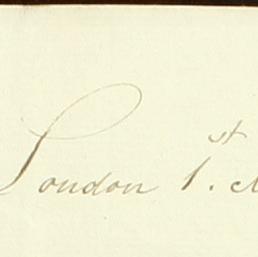 London 1.st